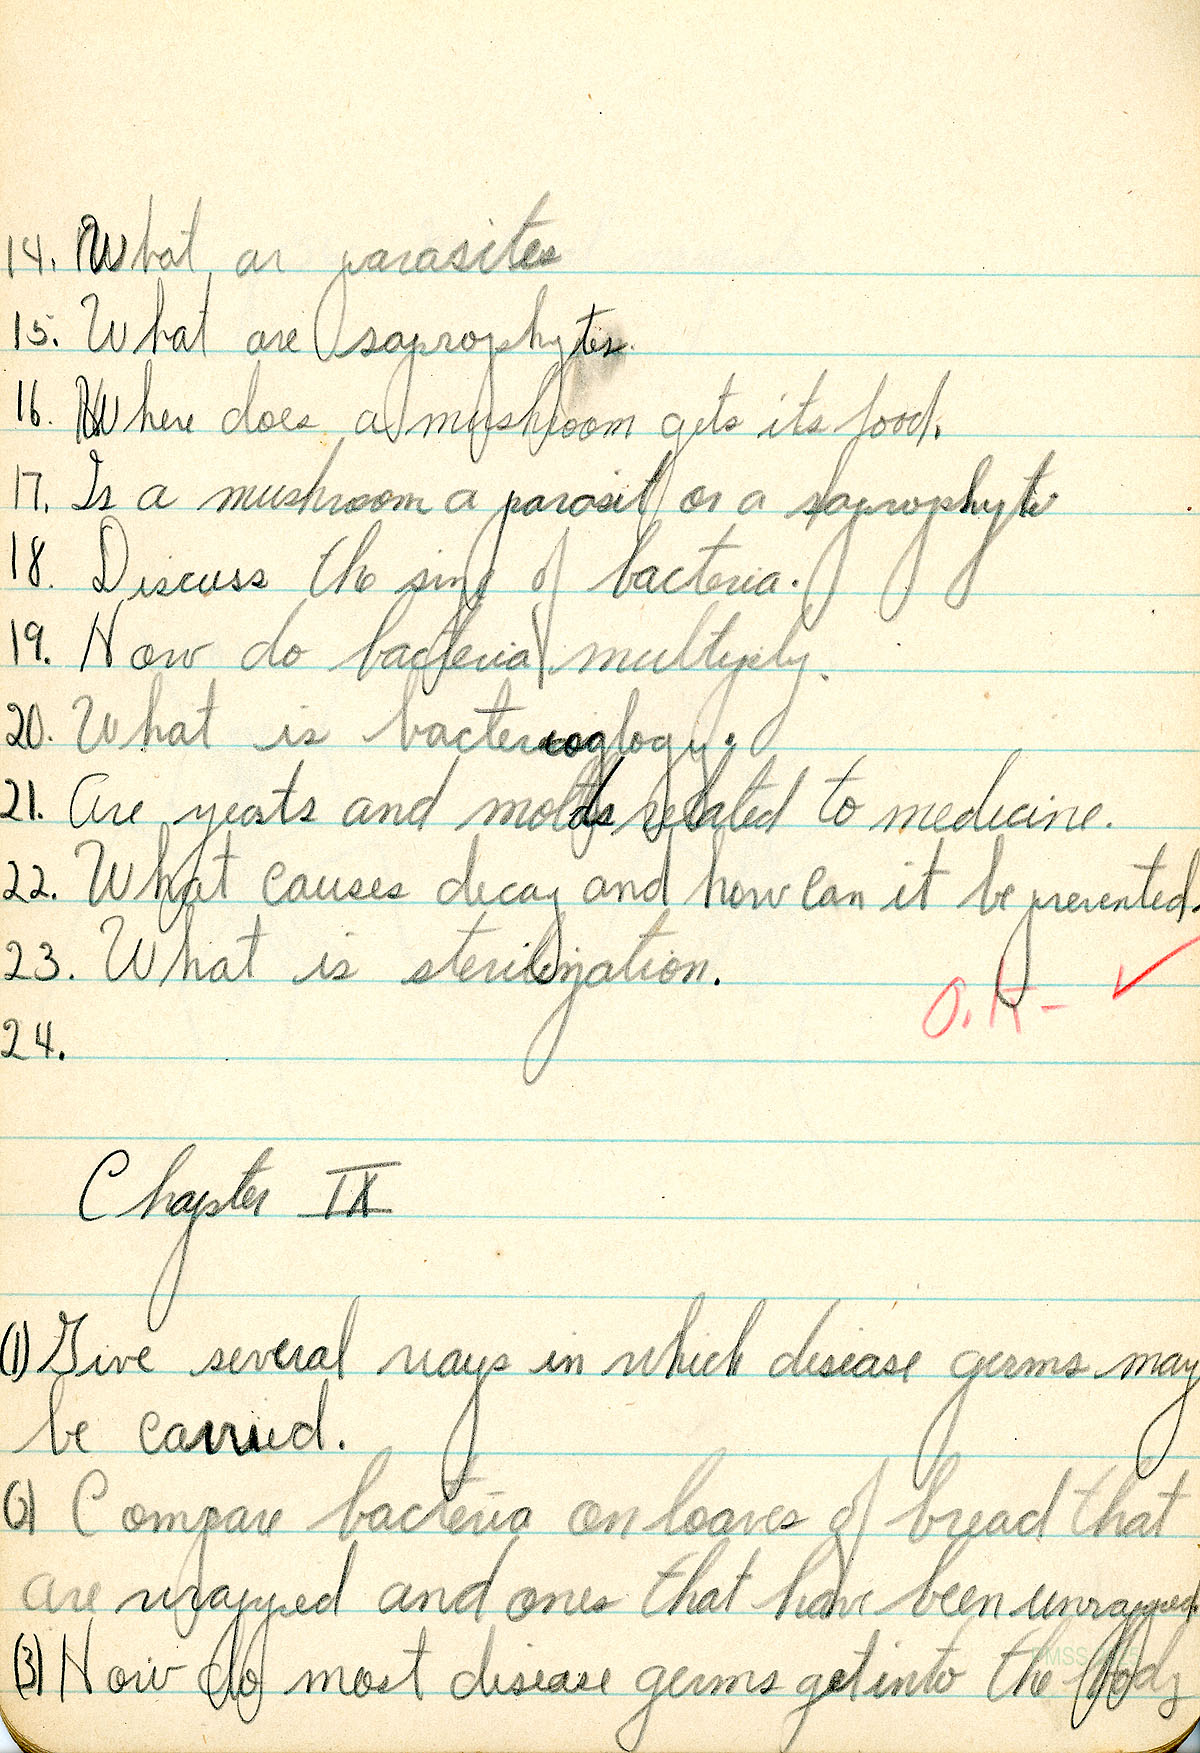 14. What ar parasites
15. What are saprophytes.
16. Where does a mushroom gets its food.
17. Is a mushroom a parasit or a saprophyte
18. Discuss the sing of bacteria.
19. How do bacteria multiply.
20. What is bacterioglogy.
21. Are yeasts and molds related to medicine.
22. What causes decay and how can it be prevented.
23. What is sterilization.
O.K- ✓
24.
Chapter IX
(1) Give several ways in which disease germs may
be carried.
(2) Compare bacteria on loaves of bread that
are wrapped and ones that have been unwrapped.
(3) How do most disease germs get into the body